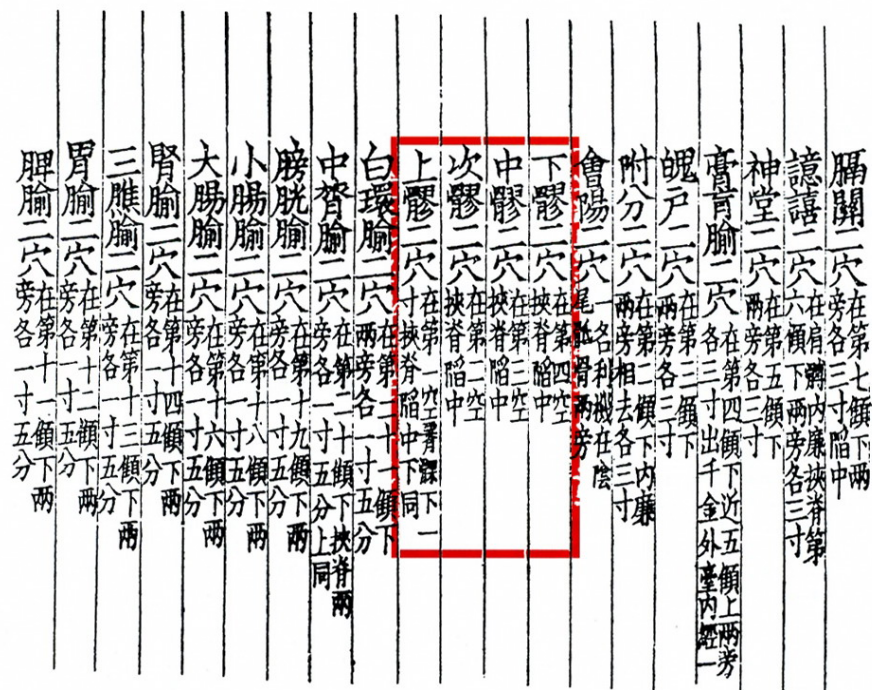 膈關二穴 在第七顀下兩旁各三寸陷中
譩譆二穴 在肩髆內廉挾脊第六顀下兩旁各三寸
神堂二穴 在第五顀下兩旁各三寸
膏肓腧二穴 在第四顀下近五顀上兩旁各三寸出千金外臺內經一
魄戶二穴 在第三顀下兩旁各三寸
附分二穴 在第二顀下內廉兩旁相去各三寸
會陽二穴 一名利機在陰尾骶骨兩旁
下髎二穴 在第四空挾脊陷中
中髎二穴 在第三空挾脊陷中
次髎二穴 在第二空挾脊陷中
上髎二穴 在第一空踝下一寸挾脊陷中下同
白環腧二穴 在第二十一顀下兩旁各一寸五分
中膂腧二穴 在第二十顀下挾脊兩旁各一寸五分上同
膀胱腧二穴 在第十九顀下兩旁各一寸五分
小腸腧二穴 在第十八顀下兩旁各一寸五分
大腸腧二穴 在第十六顀下兩旁各一寸五分
腎腧二穴 在第十四顀下兩旁各一寸五分
三膲腧二穴 在第十三顀下兩旁各一寸五分
胃腧二穴 在第十二顀下兩旁各一寸五分
脾腧二穴 在第十一顀下兩旁各一寸五分